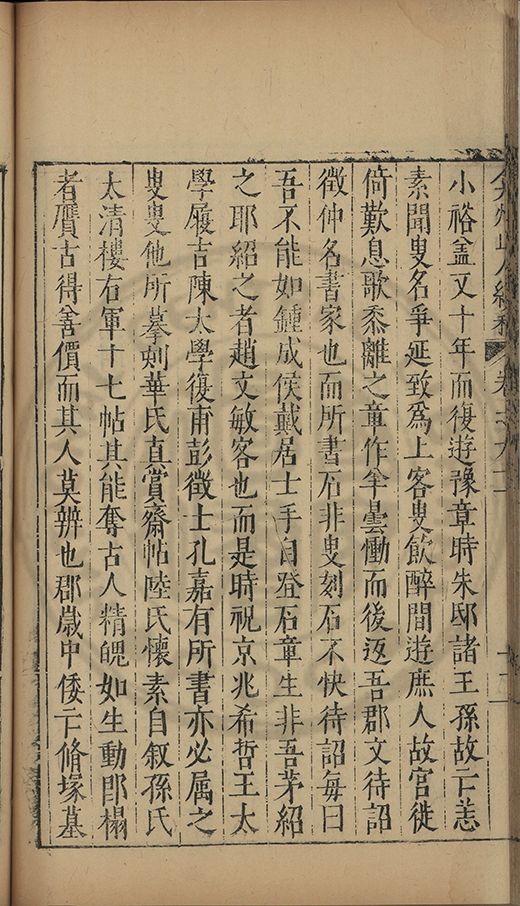 弇州山人續稿 卷之九十二 十二
小裕盖又十年而復遊豫章時朱邸諸王孫故亡恙
素聞叟名爭延致爲上客叟飲醉間遊庶人故宮徙
倚歎息歌黍離之章作羊曇慟而後返吾郡文待詔
徵仲名書家也而所書石非叟刻石不快待詔每曰
吾不能如鍾成侯戴居士手自登石章生非吾茅紹
之耶紹之者趙文敏客也而是時祝京兆希哲王太
學履吉陳太學復甫彭徵士孔嘉有所書亦必属之
叟叟他所摹刻華氏真賞齋帖陸氏懷素自叙孫氏
太清樓右軍十七帖其能奪古人精魄如生動即榻
者贋古得善價而其人莫辨也郡歲中倭亡脩塚墓